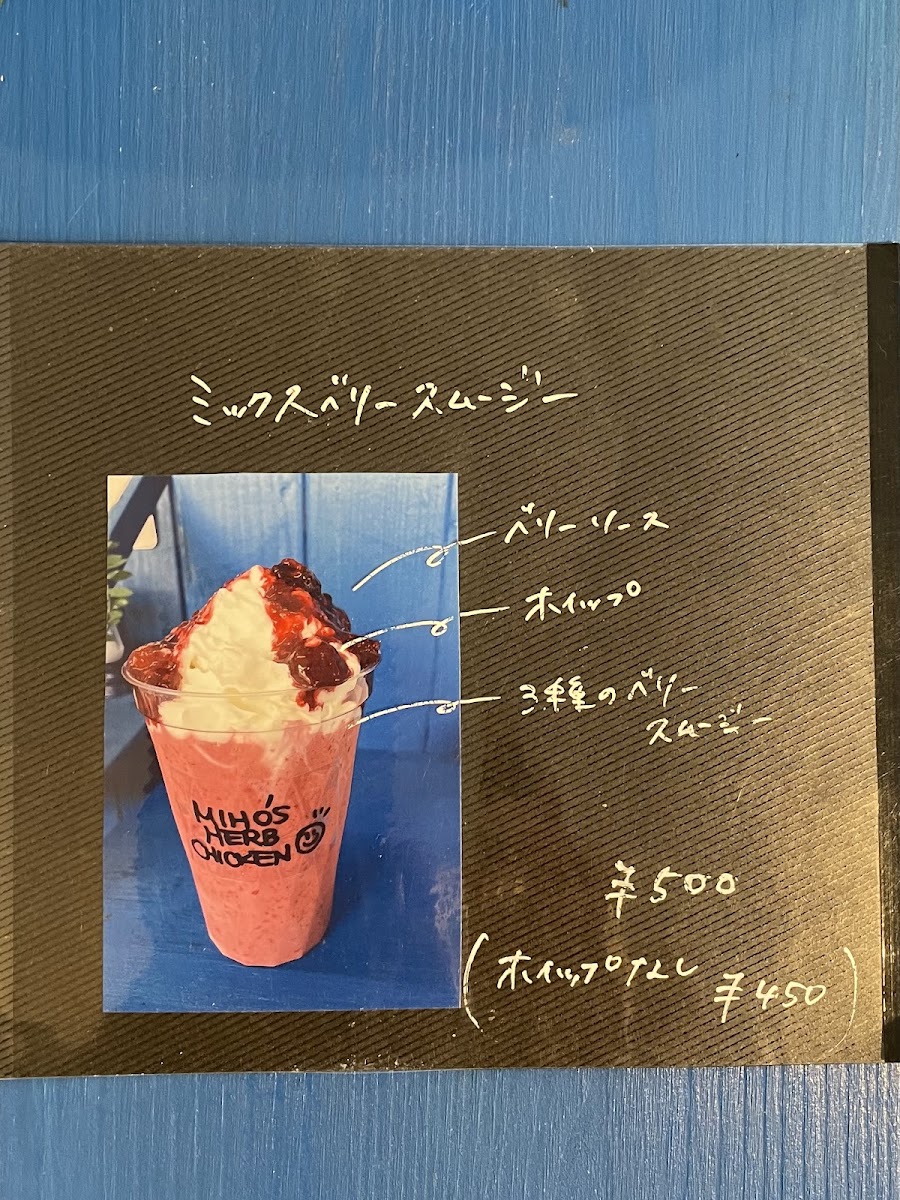 ミックスベリースムージー
ベリーソース
ホイップ
3種のベリー
スムージー
MIHO'S
HERB
CHICKEN
¥500
(ホイップなし ¥450)